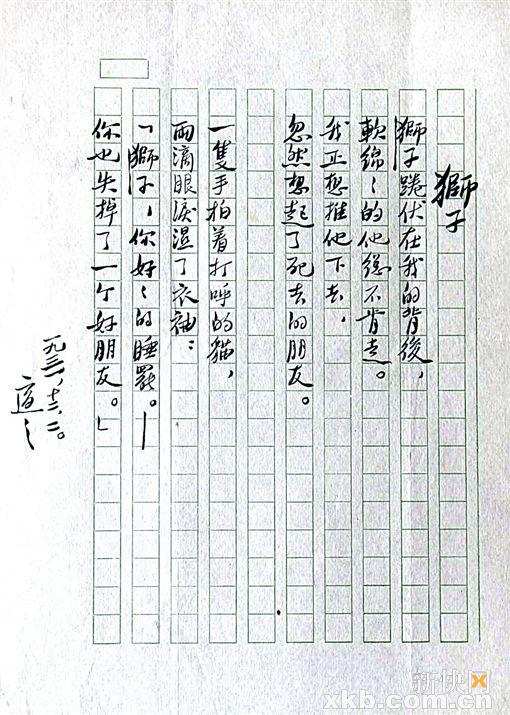 獅子
獅子踡伏在我的背後，
軟綿々的他總不肯走。
我正想推他下去，
忽然想起了死去的朋友。
一隻手拍着打呼的貓，
兩滴眼淚濕了衣袖：
「獅子，你好々的睡罷。—
你也失掉了一个好朋友。」
一九三一，十二，二。
適之
新快
xkb.com.cn